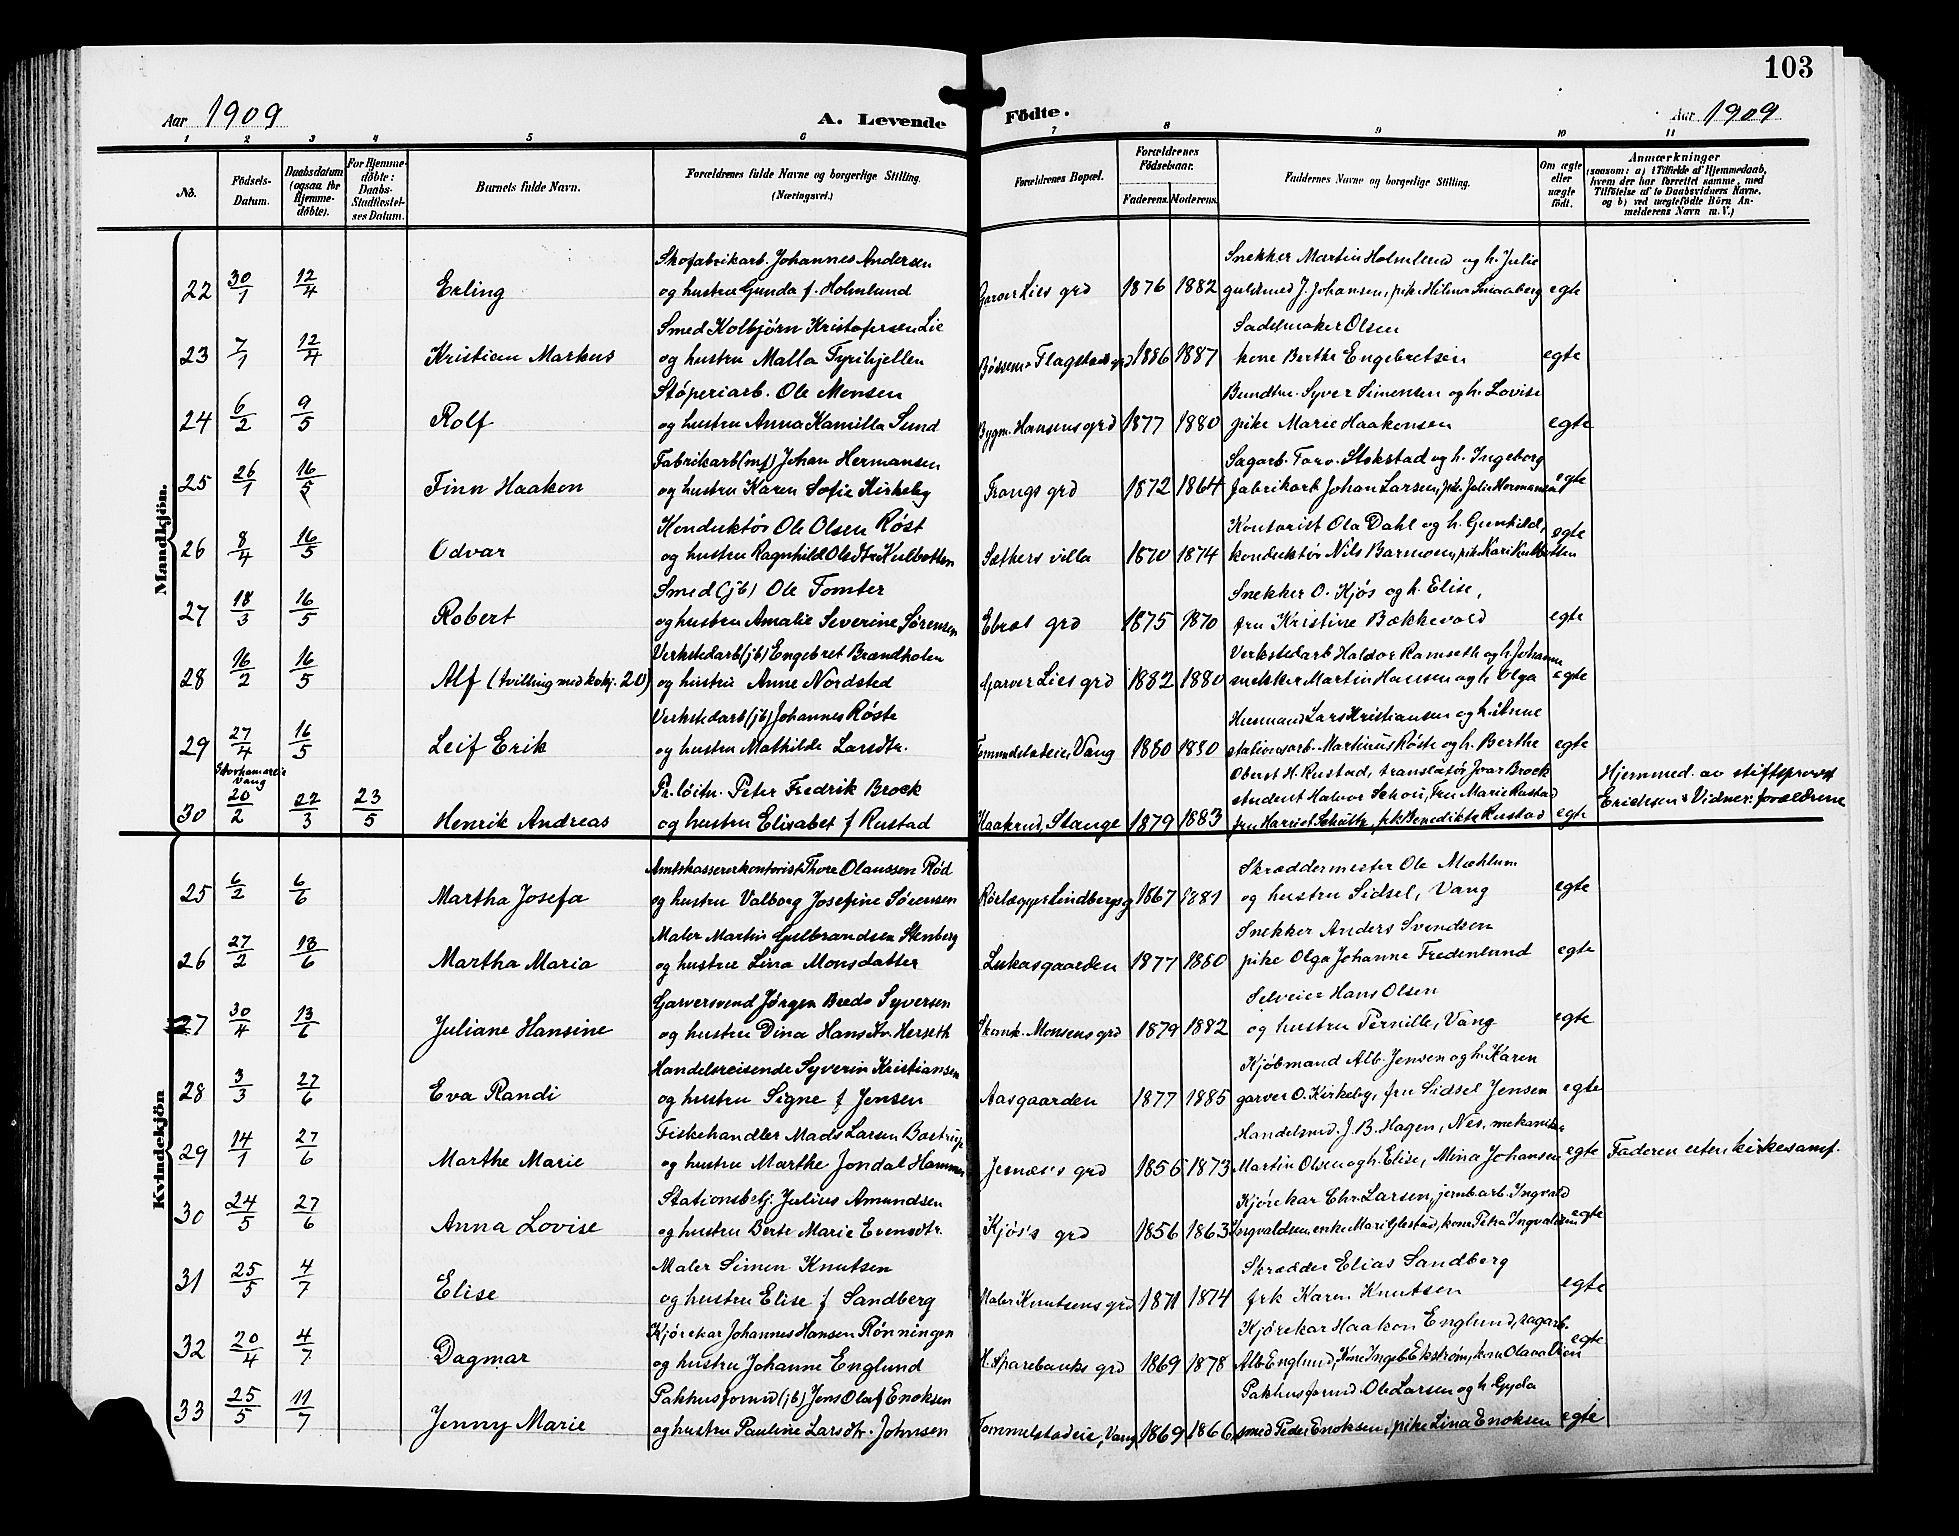 103
Aar 1909
A. Levende Födte.
Aar 1909
1 2 3 4 5 6 7 8 9 10 11
No.
Födsels-Datum.
Daabsdatum (ogsaa for Hjemmedöbte).
For Hjemmedöbte: Daabs-Stadfæstelses Datum.
Barnets fulde Navn.
Forældrenes fulde Navne og borgerlige Stilling. (Næringsvei.)
Forældrenes Bopæl.
Forældrenes Födselsaar.
Faderens. Moderens.
Faddernes Navne og borgerlige Stilling.
Om ægte eller uægte födt.
Anmærkninger (saasom: a) i Tilfælde af Hjemmedaab, hvem der har forrettet samme, med Tilföielse af to Daabsvidners Navne, og b) ved uægtefödte Börn Anmelderens Navn m. V.)
Mandkjön.
Skofabrikarb. Johannes Andersen Snekker Martin Holmlund og h. Julie
22 30/1 12/4 Erling og hustru Gunda f. Holmlund Garver Lies grd 1876 1882 guldsmed J. Johansen, pike Hilma Smaaberg egte
Smed Kolbjørn Kristofersen Lie Sadelmaker Olsen
23 7/1 12/4 Kristian Markus og hustru Malla Tyrihjellen Bøssem. Flagstads grd 1886 1887 kone Berthe Engebretsen egte
Støperiarb. Ole Monsen Bundtm. Syver Simensen og h. Lovise
24 6/2 9/5 Rolf og hustru Anna Kamilla Sund Bygm. Hansens grd 1877 1880 pike Marie Haakensen egte
Fabrikarb (mf) Johan Hermansen Sagarb. Torv. Stokstad og h. Ingeborg
25 26/1 16/5 Finn Haakon og hustru Karen Sofie Kirkeby Frangs grd 1872 1864 fabrikarb Johan Larsen, pik. Julie Hermansen egte
Konduktør Ole Olsen Røst Kontorist Ola Dahl og h. Gunhild,
26 8/4 16/5 Odvar og hustru Ragnhild Olsdtr. Kulbotten Sæthers villa 1870 1874 konduktør Nils Barmoen, pik. Kari Kulbotten egte
Smed (jb) Ole Tomter Snekker O. Kjøs og h. Elise,
27 18/3 16/5 Robert og hustru Amalie Severine Sørensen Ebrol grd 1875 1870 fru Kristine Bækkevold egte
Verkstedarb (jb) Engebret Brændholen Verkstedarb Haldor Ramseth og h. Johanne
28 16/2 16/5 Alf (tvilling med kvkj. 20) og hustru Anne Nordsted Garver Lies grd 1882 1880 snekker Martin Hansen og h. Olga egte
Verkstedarb (jb) Johannes Røste Husmand Lars Kristiansen og h. Anne
29 27/4 16/5 Leif Erik og hustru Mathilde Larsdtr. Tommelstadeie, Vang 1880 1880 stationsarb. Martinus Røste og h. Berthe egte
Storhamareie Vang Pr. löitn. Peter Fredrik Brock Oberst H. Rustad, translatør Joar Brock Hjemmed. av stiftsprovst
student Halvor Schou, Fru Marie Rustad Erichsen: Vidner: forældrene
30 20/2 22/3 23/5 Henrik Andreas og hustru Elisabet f Rustad Haakrud, Stange 1879 1883 fru Harriet Schultz, frk Benedikte Rustad egte
Kvindekjön
Amtskassererkontorist Thore Olaussen Rød Skræddermester Ole Mæhlum
25 6/2 6/6 Martha Josefa og hustru Valborg Josefine Sørensen Rörlægger Lindbergs g 1867 1881 og hustru Sidsel, Vang egte
Maler Martin Gulbrandsen Stenberg Snekker Anders Svendsen
26 27/2 13/6 Martha Maria og hustru Lina Monsdatter Lukasgaarden 1877 1880 pike Olga Johanne Fredenlund egte
Garversvend Jørgen Bredo Syversen Selveier Hans Olsen
27 30/4 13/6 Juliane Hansine og hustru Dina Hansdtr. Herseth Skomk. Monsens grd 1879 1882 og hustru Pernille, Vang egte
Handelsreisende Syverin Kristiansen Kjøbmand Alb. Jensen og h. Karen
28 3/3 27/6 Eva Randi og hustru Signe f Jensen Aasgaarden 1877 1885 garver O. Kirkeby, fru Sidsel Jensen egte
Fiskehandler Mads Larsen Bostrup Handelsmd. J. B. Hagen, Nes, mekaniker
29 14/1 27/6 Marthe Marie og hustru Marthe Jondal Hammer Jernæs's grd 1856 1873 Martin Olsen og h. Elise, Mina Johansen egte Faderen uten kirkesamf.
Stationsbetj. Julius Amundsen Kjørekar Chr. Larsen, jernbarb. Ingvald
30 24/5 27/6 Anna Lovise og hustru Berte Marie Evensdtr. Kjøs's grd 1856 1863 Torgvaldsen, enke Mari Glestad, kone Petra Ingvaldsen egte
Maler Simen Knutsen Skrædder Elias Sandberg
31 25/5 4/7 Elise og hustru Elise f Sandberg Maler Knutsens grd 1871 1874 frk Karen Knutsen egte
Kjørekar Johannes Hansen Rønningen Kjørekar Haakon Englund, sagarb.
32 20/4 4/7 Dagmar og hustru Johanne Englund H. Sparebanks grd 1869 1878 Alb Englund, Kone Ingeb. Ekstrøm, kone Olava Lien egte
Pakhusformd (jb) Jens Olaf Enoksen Pakhusformd. Ole Larsen og h. Gyda
33 25/5 11/7 Jenny Marie og hustru Pauline Larsdtr. Johnsen Tommelstadeie, Vang 1869 1866 smed Peder Enoksen, pike Lina Enoksen egte